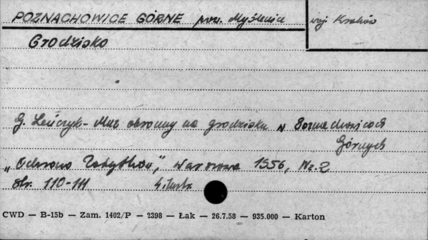 POZNACHOWICE GÓRNE pow. Myślenice
woj. Kraków
Grodzisko
G. Leńczyk - Mur obronny na grodzisku w Poznachowicach
Górnych
„Ochrona Zabytków”, Warszawa 1956, Nr. 2
str. 110-111
CWD — B-15b — Zam. 1402/P — 2398 — Łak — 26.7.58 — 935.000 — Karton